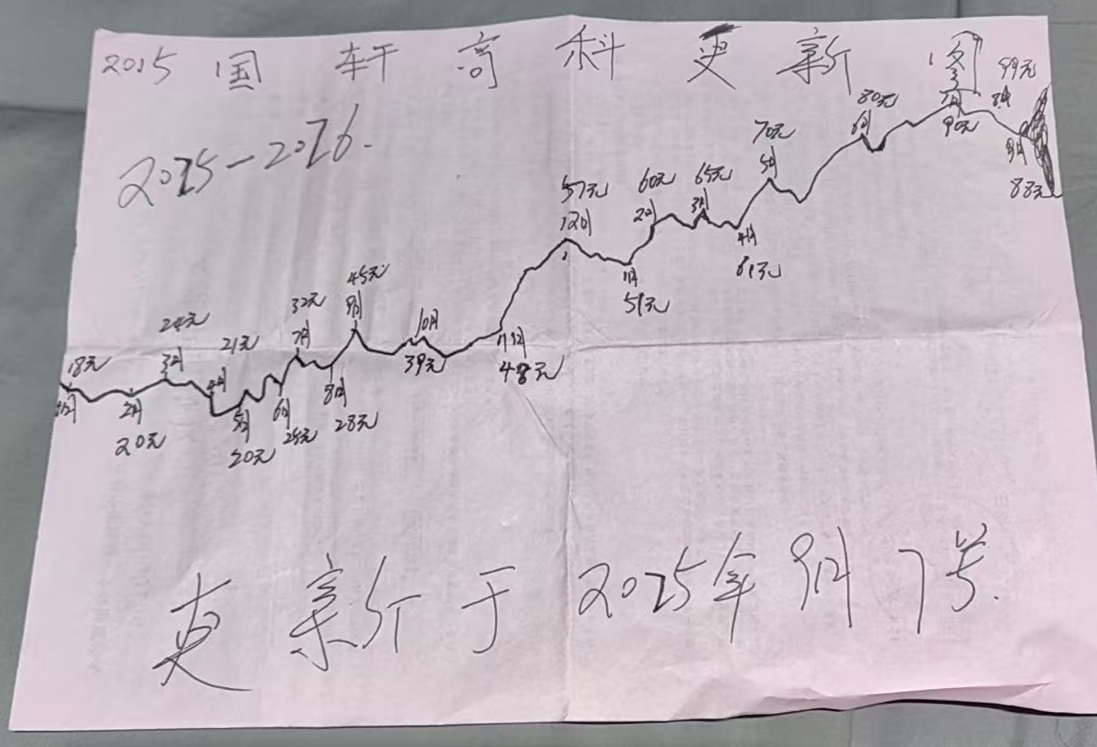 2025 国轩高科更新图
2025-2026.
99元
8月
80元
6月
7月
90元
9月
88元
70元
5月
57元
12月
60元
2月
65元
3月
4月
61元
1月
51元
45元
9月
10月
39元
11月
48元
32元
7月
8月
28元
24元
3月
21元
4月
18元
1月
2月
20元
5月
20元
6月
25元
更新于2025年9月7号.